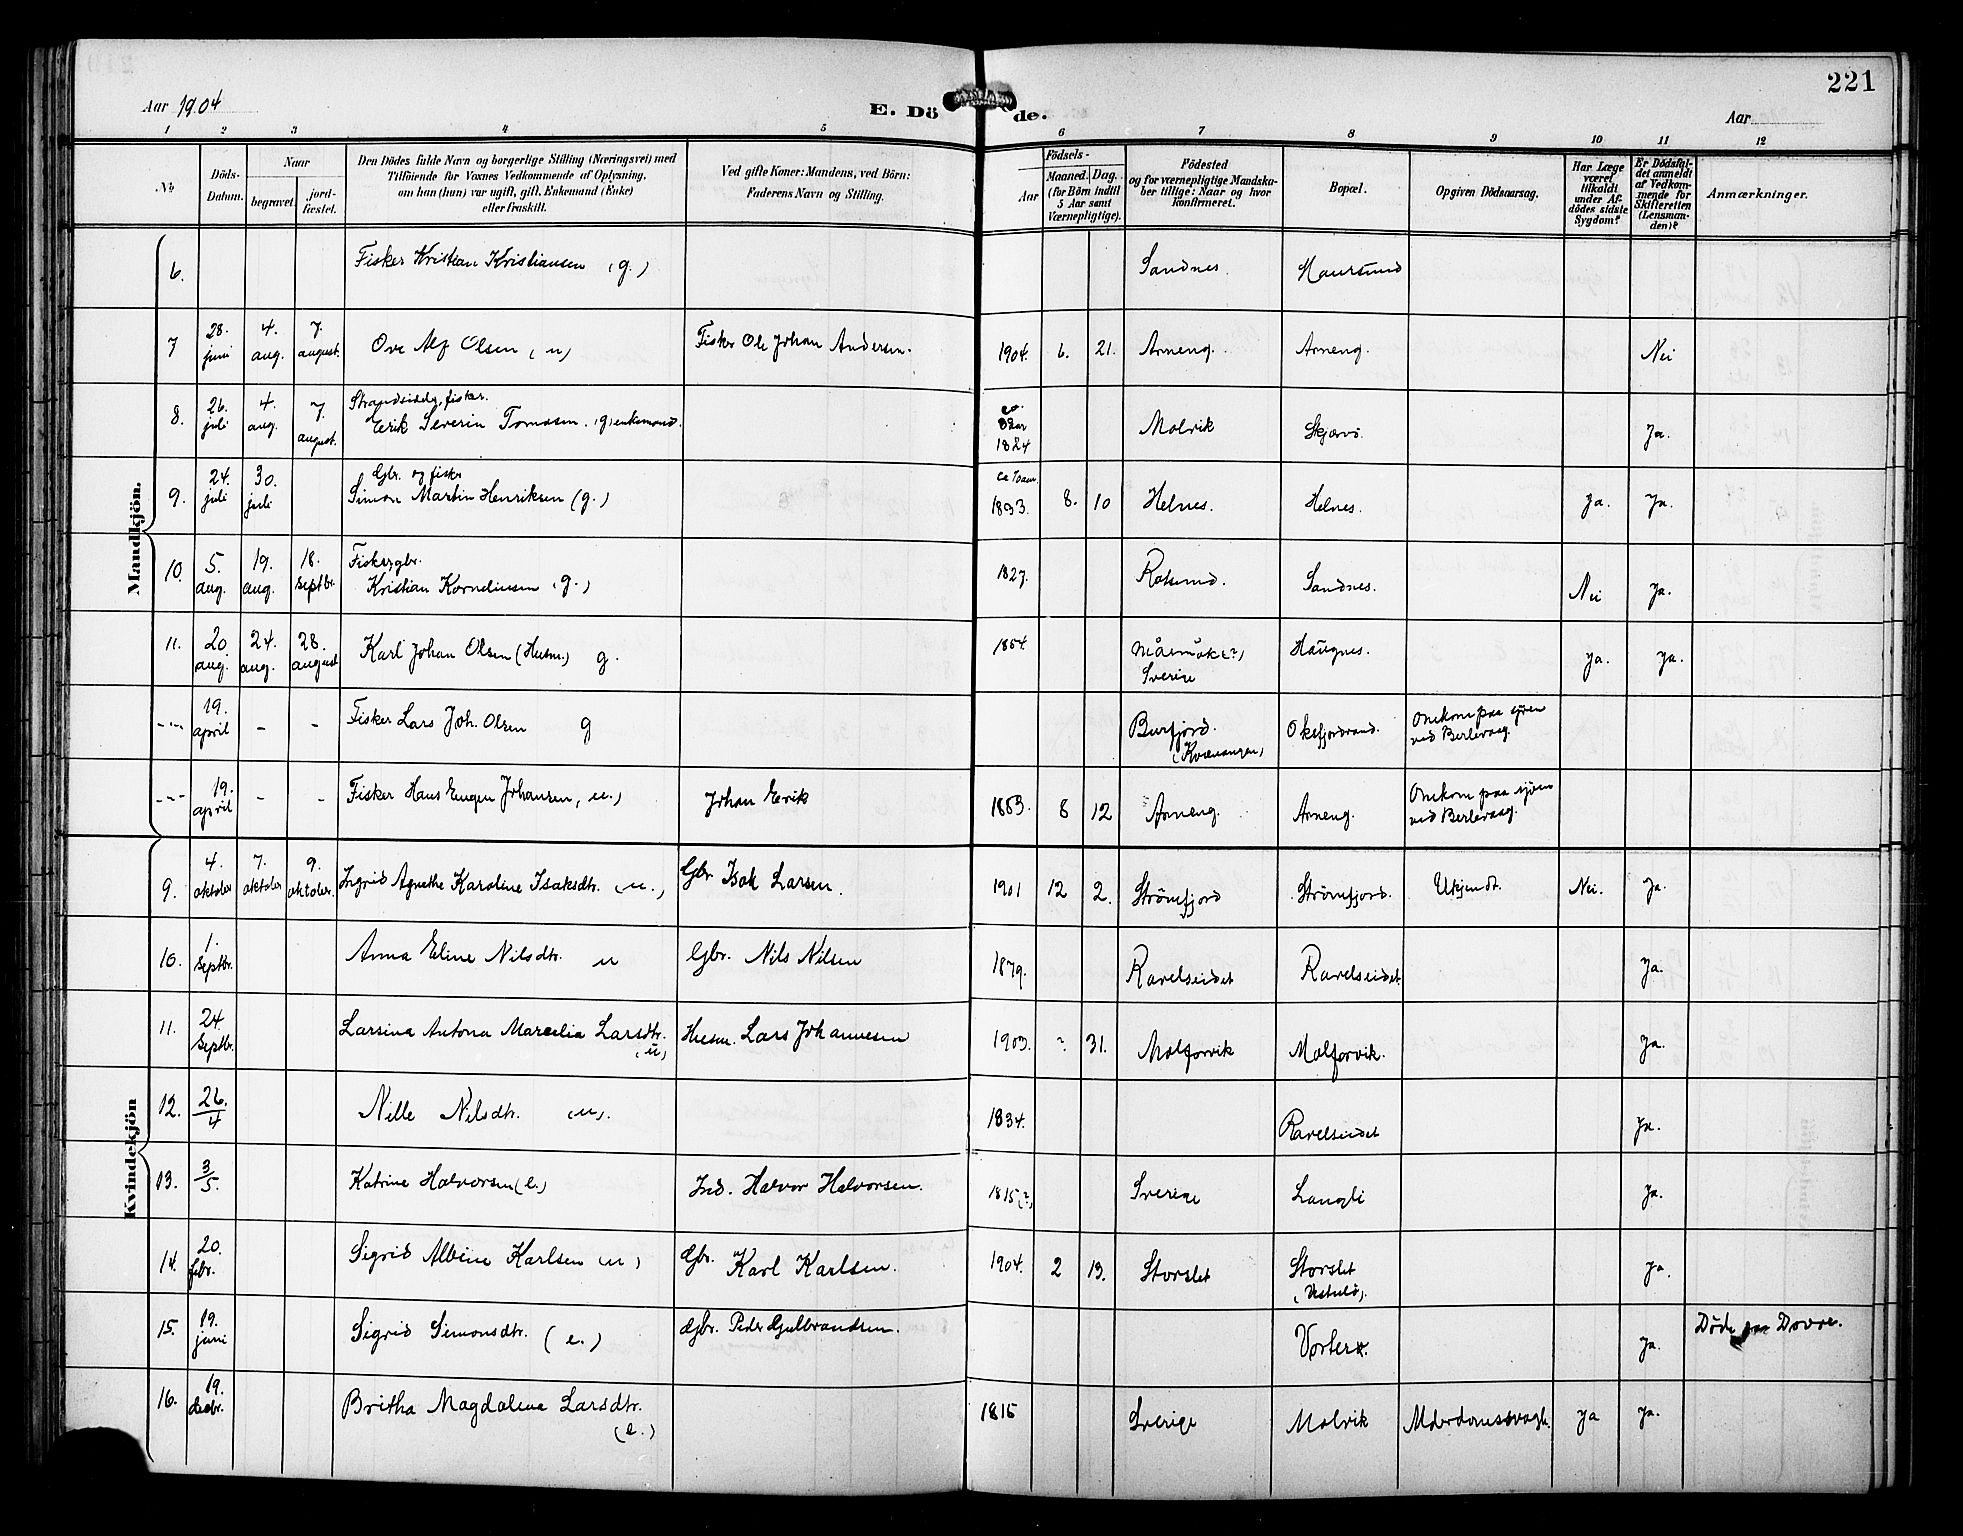 221
Aar 1904
E. Dö de.
Aar
1 2 3 4 5 6 7 8 9 10 11 12
No
Döds-
Datum.
Naar
begravet.
jord-
fæstet.
Den Dödes fulde Navn og borgerlige Stilling (Næringsvei) med
Tilföiende for Voxnes Vedkommende af Oplysning,
om han (hun) var ugift, gift, Enkemand (Enke)
eller fraskilt.
Ved gifte Koner: Mandens, ved Börn:
Faderens Navn og Stilling.
Födsels-
Aar
Maaned. Dag.
(for Börn indtil
5 Aar samt
Værnepligtige).
Födested
og for værnepligtige Mandska-
ber tillige: Naar og hvor
konfirmeret.
Bopæl.
Opgiven Dödsaarsag.
Har Læge
været
tilkaldt
under Af-
dödes sidste
Sygdom?
Er Dödsfal-
det anmeldt
af Vedkom-
mende for
Skifteretten
(Lensman-
den)?
Anmærkninger.
Mandkjön.
6. Fisker Kristian Kristiansen (g.) Sandnes. Maursund
7 28. juni 4. aug. 7. august. Ove Alf Olsen (u) Fisker Ole Johan Andersen. 1904. 6. 21. Arneng. Arneng. Nei
8. 26. juli 4. aug. 7. august. Strandsidder, fisker.
Erik Severin Tomassen. (g) enkemand. 1824 Molvik Skjærvö. Ja.
9. 24. juli 30. juli Gbr. og fisker
Simon Martin Henriksen (g.) 8. 10 Helnes. Helnes. Ja. Ja.
10. 5. aug. 19. aug. 18. septbr. Fisker, gbr.
Kristian Korneliusen (g.) 1827. Rotsund. Sandnes. Nei Ja.
11. 20 aug. 24. aug. 28. august Karl Johan Olsen (Husm.) g. Sverige Haugnes. Ja. Ja.
--- 19. april - - Fisker Lars Joh. Olsen g Burfjord.
(Kvænangen) Okefjordvand. Omkom paa sjöen
ved Berlevaag.
--- 19. april - - Fisker Hans Eugen Johansen, u.) Johan Erik 8 12 Arneng. Arneng. Omkom paa sjöen
ved Berlevaag.
Kvindekjön
9. 4. oktober 7. oktober 9. oktober. Ingrid Agnethe Karoline Isaksdtr. (u.) Gbr Isak Larsen. 1901 12 2. Strömfjord Strömfjord. Ukjendt. Nei. Ja.
10. 1. septbr. Anna Eline Nilsdtr. u Gbr. Nils Nilsen 1879. Ravelseidet Ravelseidet. Ja.
11. 24. septbr. Larsina Antona Marcelia Larsdtr.
(u) Husm. Lars Johannesen 1903. ? 31. Molforvik Molforvik. Ja.
12. 26./4 Nille Nilsdtr. (u). 1834. Ravelseidet Ja.
13. 3/5. Katrine Halvorsen (e.) Ind. Halvor Halvorsen. 1815 (?) Sverige Langli Ja.
14. 20. febr. Sigrid Albine Karlsen (u) Gbr. Karl Karlsen. 1904. 2 13. Storslet Storslet
Ja.
15. 19. juni Sigrid Simonsdtr. (e.) Gbr. Peder Gulbrandsen. Vorterø. Ja. Döde paa Dovre.
16. 19. decbr. Britha Magdalena Larsdtr.
(e.) 1815 Sverige Molvik Alderdomssvagh. Ja Ja.